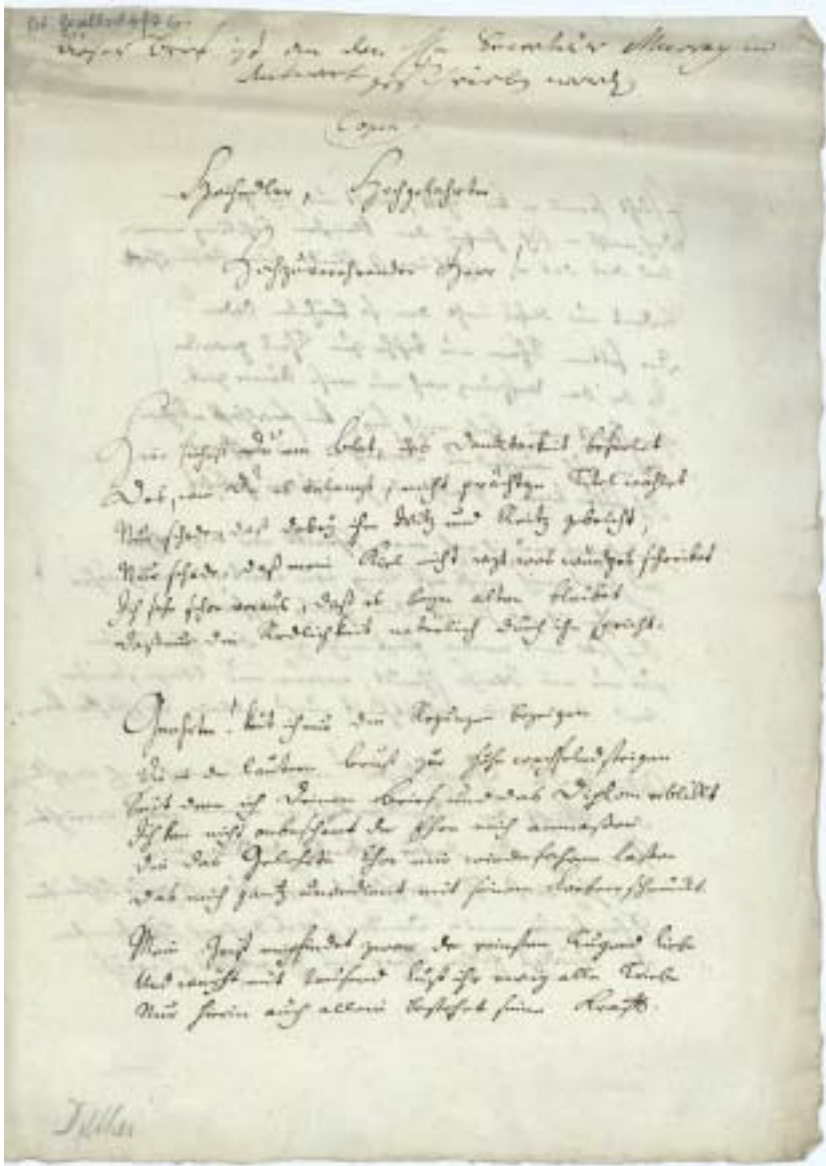 Dieser Brief ist an den Hrn Secretair Murray in
Antwort geschrieben worden
Copia
Hochedler, Hochgelahrter
Hochzuverehrender Herr
Hier siehest Du ein Blat, das Danckbarkeit beseelet
Das, wie Du es verlangst, nicht prächtge Titel wählet
Nur schade, daß dabey ihm Witz und Reitz gebricht,
Nur schade, daß mein Kiel nicht was würdges schreibet
Ich sehe schon voraus, daß es beym alten bleibet
Daß nur die Redlichkeit natürlich durch ihn spricht.
Geehrter! laß ihm die Regungen bezeigen
Die in der Brust zur Höhe steigen
Seit dem ich Deinen Brief und das Diplom erblickt
Ich kan nicht der Ehre mich anmaßen
Die das Geehrte Chor mir wiederfahren laßen
Das mich gantz unverdient mit seinem schmückt.
Mein Geist empfindet zwar der reinsten Tugend Liebe
Und weyht mit tausend Lust ihr ewig alle Triebe
Nur hierin auch allein bestehet seine Krafft.